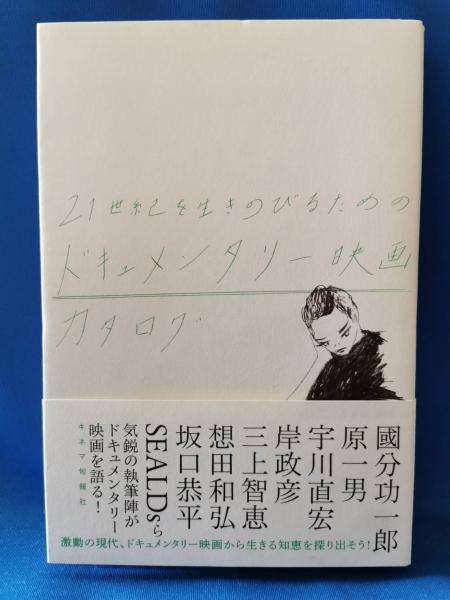 21世紀を生きのびるための
ドキュメンタリー映画
カタログ
國分功一郎
原一男
宇川直宏
岸政彦
三上智恵
想田和弘
坂口恭平
SEALDsら
気鋭の執筆陣が
ドキュメンタリー
映画を語る!
キネマ旬報社
激動の現代、ドキュメンタリー映画から生きる知恵を探り出そう!